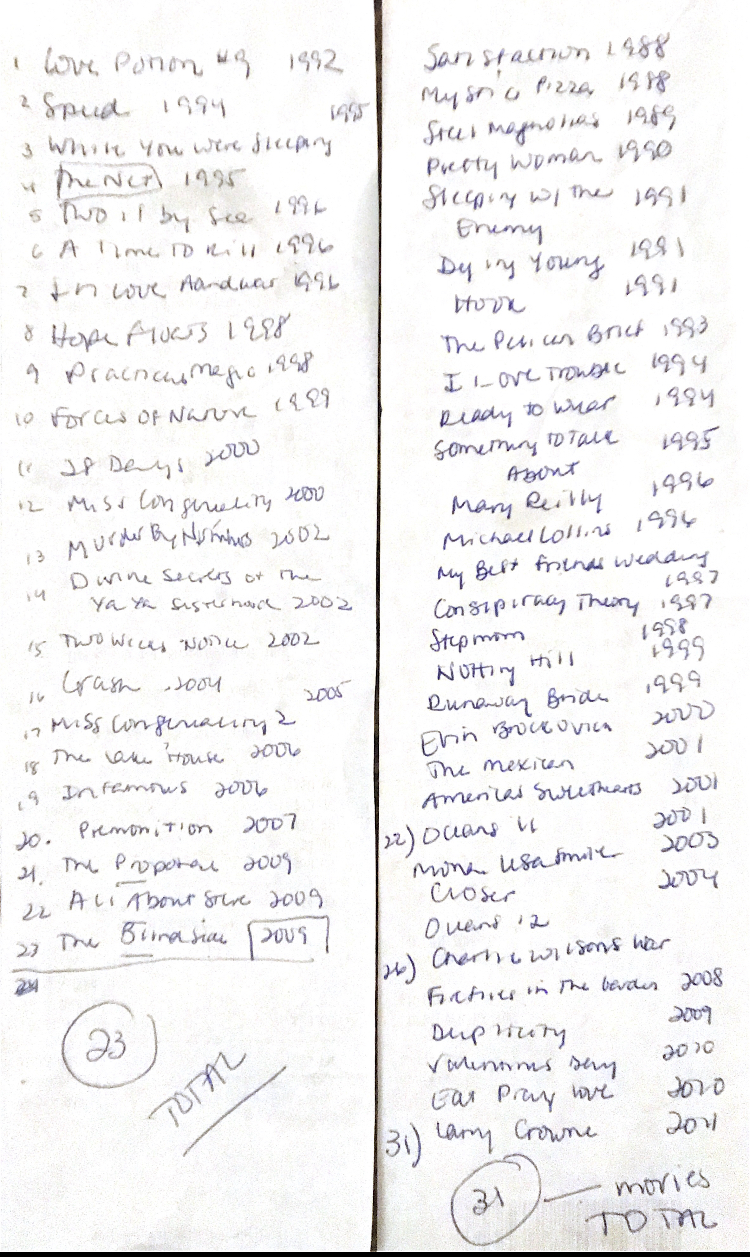 1 Love Potion #9 1992
2 Speed 1994
1995
3 While You Were Sleeping
4 The Net 1995
5 Two if by Sea 1996
6 A Time To Kill 1996
7 In Love And War 1996
8 Hope Floats 1998
9 Practical Magic 1998
10 Forces of Nature 1999
11 28 Days 2000
12 Miss Congeniality 2000
13 Murder By Numbers 2002
14 Divine Secrets of the
Ya Ya Sisterhood 2002
15 Two Weeks Notice 2002
16 Crash 2004
2005
17 Miss Congeniality 2
18 The Lake House 2006
19 Infamous 2006
20. Premonition 2007
21. The Proposal 2009
22 All About Steve 2009
23 The Blind Side 2009
23
TOTAL
Satisfaction 1988
Mystic Pizza 1988
Steel Magnolias 1989
Pretty Woman 1990
Sleeping w/ the 1991
Enemy
Dying Young 1991
Hook 1991
The Pelican Brief 1993
I Love Trouble 1994
Ready to Wear 1994
Something To Talk 1995
About
Mary Reilly 1996
Michael Collins 1996
My Best Friends Wedding
1997
Conspiracy Theory 1997
Stepmom 1998
Notting Hill 1999
Runaway Bride 1999
Erin Brockovich 2000
The Mexican 2001
Americas Sweethearts 2001
22) Oceans 11 2001
Mona Lisa Smile 2003
Closer 2004
Oceans 12
26) Charlie Wilsons War
Fireflies in the Garden 2008
Duplicity 2009
Valentines Day 2010
Eat Pray Love 2010
31) Larry Crowne 2011
31 — movies
TOTAL